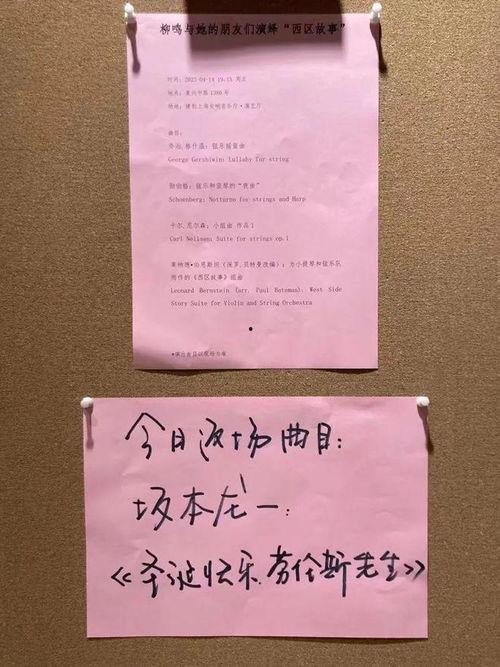 柳鸣与她的朋友们演绎“西区故事”
时间：2023-04-14 19:15 周五
地点：复兴中路1380号
场地：捷豹上海交响音乐厅·演艺厅
曲目：
乔治.格什温：弦乐摇篮曲
George Gershiwin: Lullaby for string
勋伯格：弦乐和竖琴的“夜曲”
Schoenberg: Notturno for strings and Harp
卡尔.尼尔森：小组曲 作品1
Carl Neilsen: Suite for strings op.1
莱纳德•伯恩斯坦（保罗.贝特曼改编）：为小提琴和弦乐队
所作的《西区故事》组曲
Leonard Bernstein (arr. Paul Bateman): West Side
Story Suite for Violin and String Orchestra
*演出曲目以现场为准
今日返场曲目：
坂本龙一：
《圣诞快乐.劳伦斯先生》